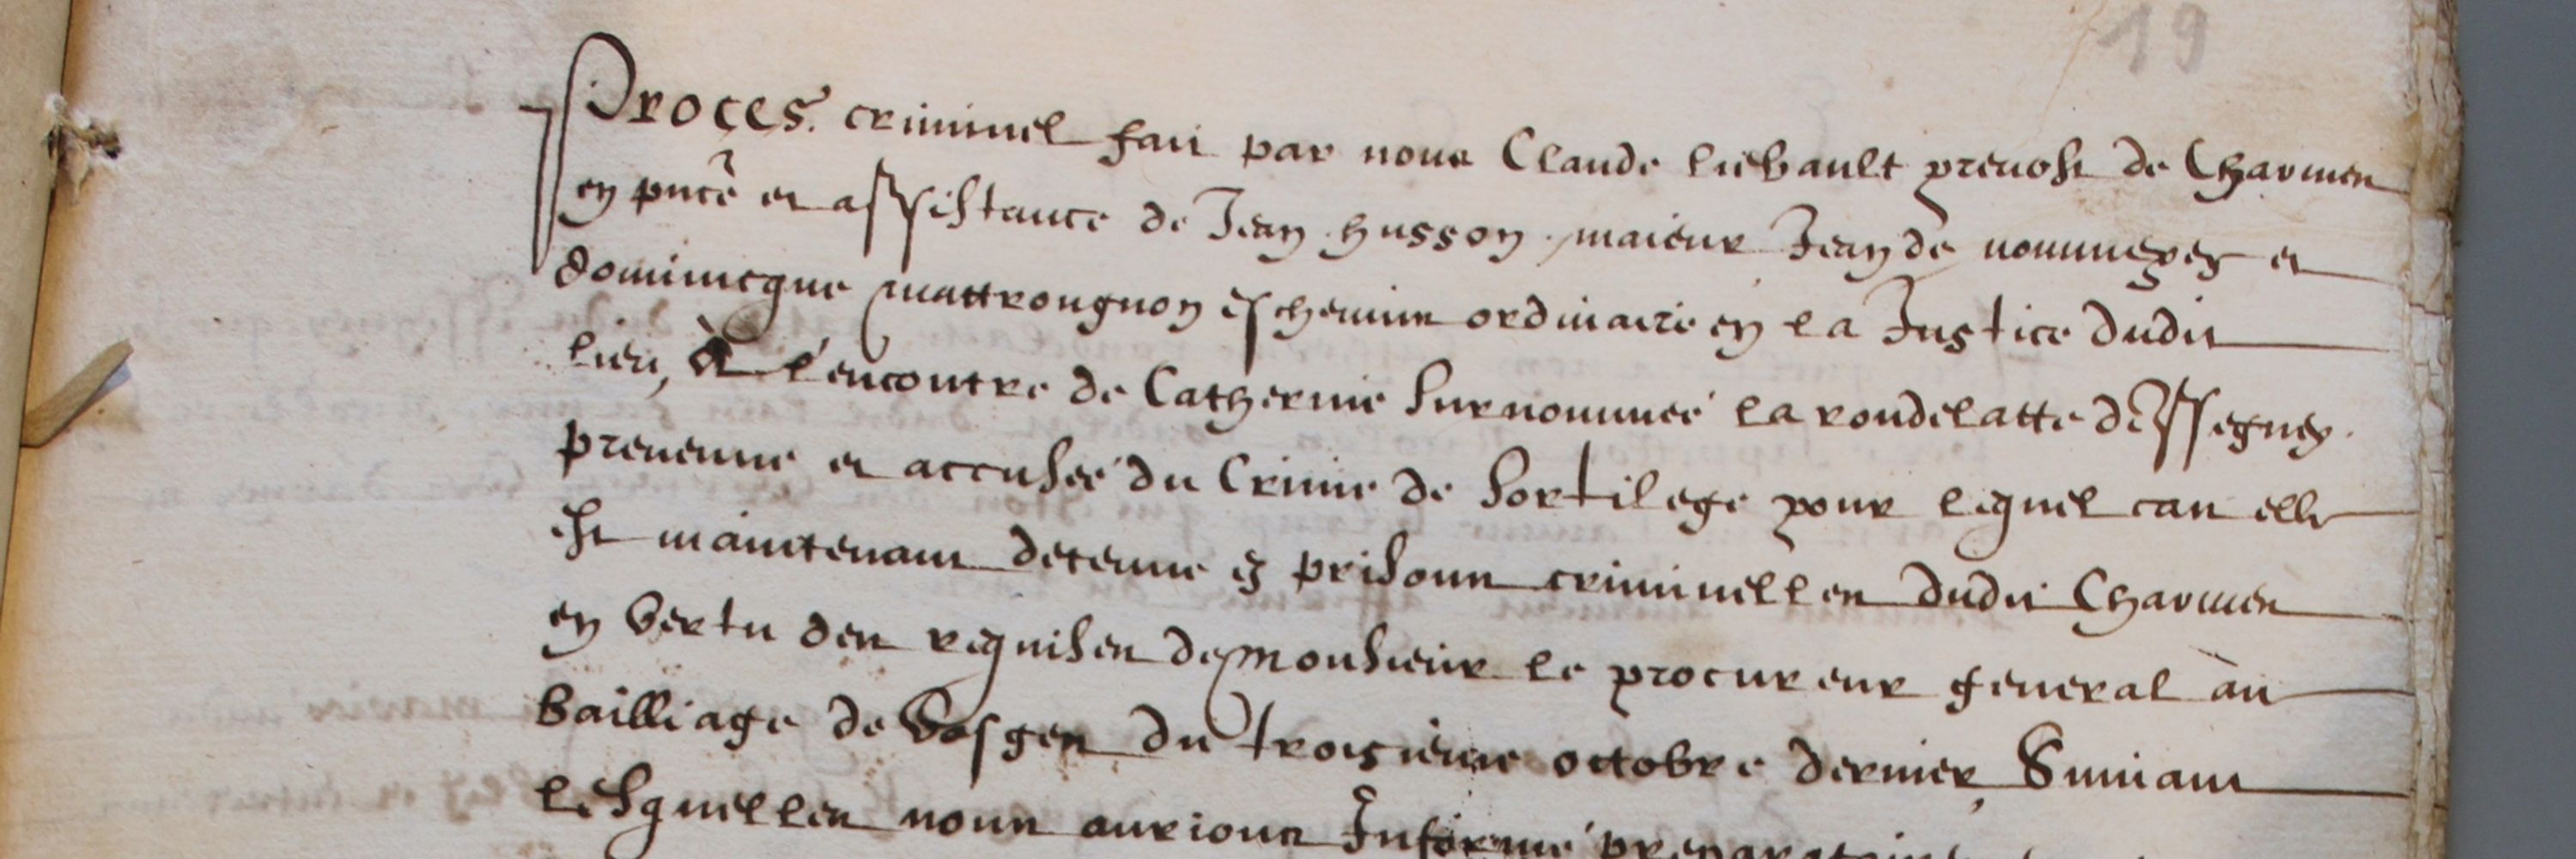 19
Proçes criminel fait par nous Claude liebault prevost de Charmes
en pnce et assistance de Jean husson maieur Jean de nommexey et
dominicque mattrougnon eschevins ordinaire en la Justice dudit
lieu, A l'encontre de Catherine surnommée la rondelatte d'Essegney
prevenue et accusée du Crime de sortilege pour lequel cas elle
est maintenant detenue es prisons criminelles dudit Charmes
en vertu des requises de monsieur le procureur general au
bailliage de vosges du troisieme octobre dernier Suivant
lesquelles nous aurions Informé